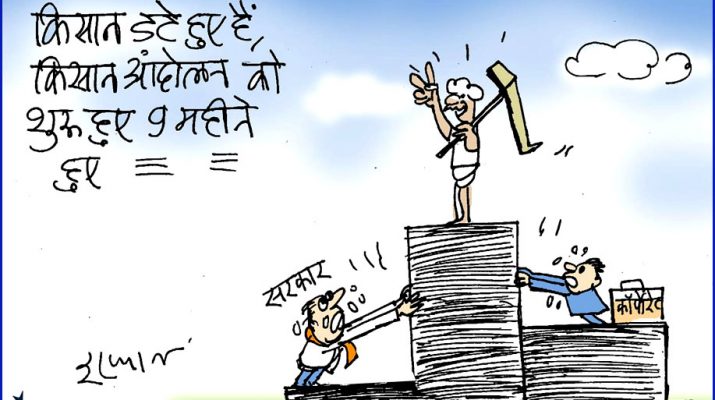 किसान डटे हुए हैं,
किसान आंदोलन को
शुरू हुए 9 महीने
हुए
सरकार
कॉर्पोरेट